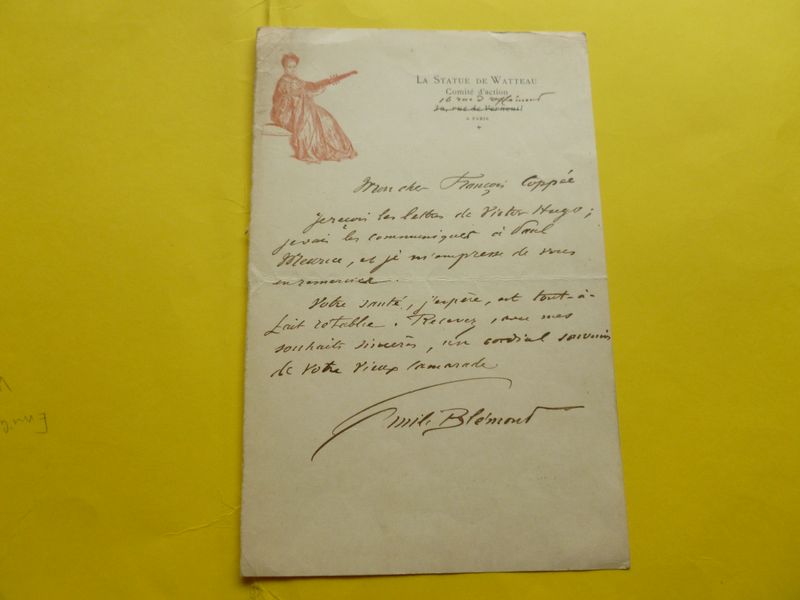 LA STATUE DE WATTEAU
Comité d'action
16 rue d'
30, rue de Verneuil
A PARIS
Mon cher François Coppée
Je reçois les lettres de Victor Hugo ;
je vais les communiquer à Paul
Meurice, et je m'empresse de vous
en remercier.
Votre santé, j'espère, est tout-à-
fait rétablie. Recevez, avec mes
souhaits sincères, un cordial souvenir
de votre vieux camarade
Emile Blémont